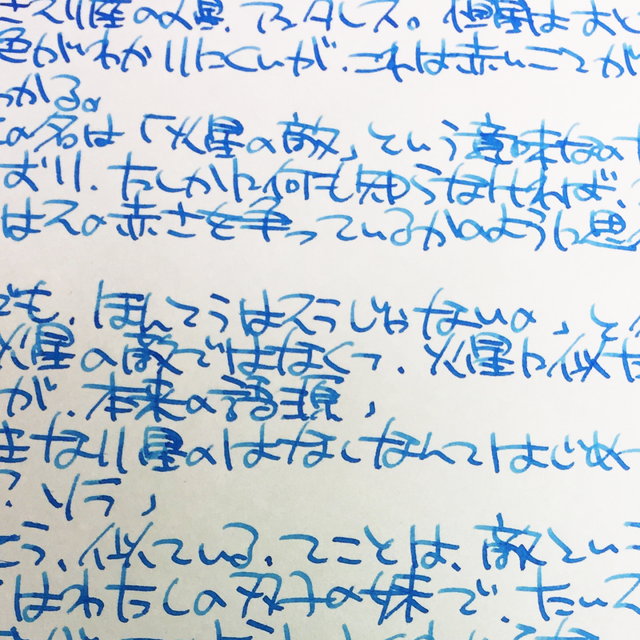 さそり座の火星、アンタレス。恒星はおと
色がわかりにくいが、これは赤いことが
わかる。
の名は「火星の敵」という意味なの
おり、たしかに何も知らなければ、
はその赤さを争っているかのように思
でも、ほんとうはそうじゃないの、そ
火星の敵ではなくって、火星に似た
が、本来の語源」
星のはなしなんてはじめ
?、ソラ」
そう、似ている、てことは、敵とい
はわたしの双子の妹で、たいそ